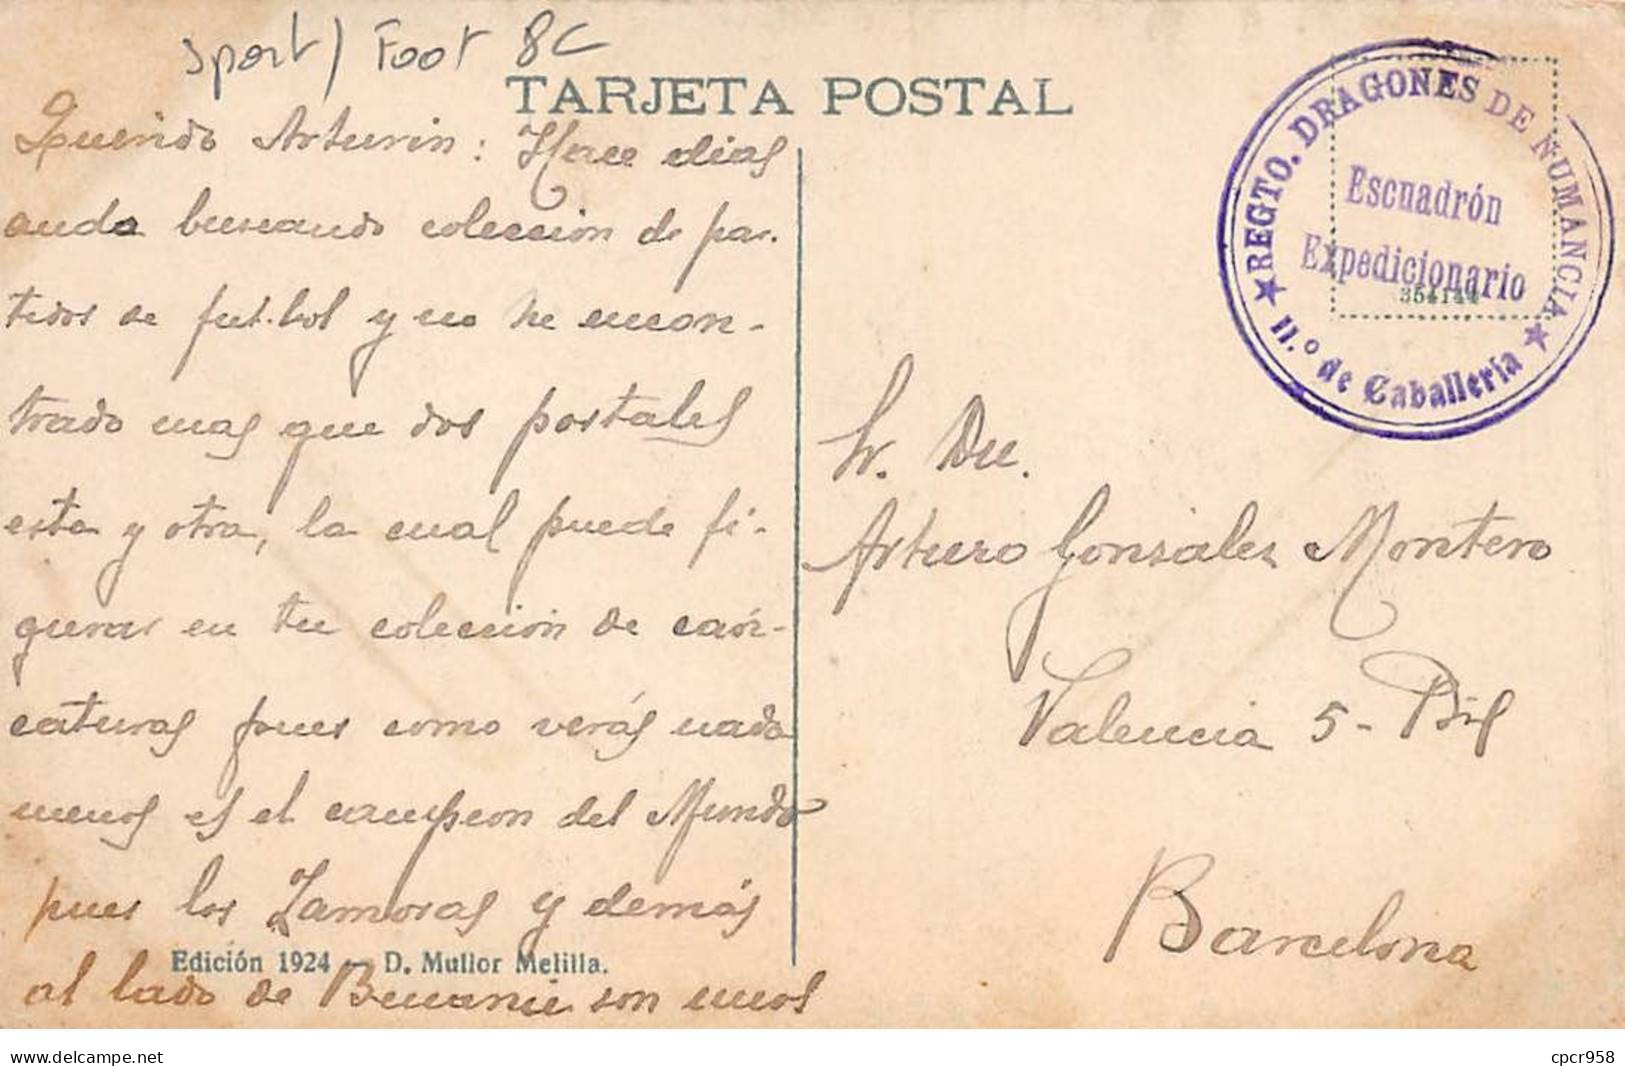 Sport) Foot 8C
TARJETA POSTAL
Querido Arturin: Hace dias
ando buscando colección de par-
tidos de fut-bol y no he encon-
trado mas que dos postales
esta y otra, la cual puede fi-
gurar en tu colección de cari-
caturas pues como verás nada
menos es el campeon del Mundo
pues los Zamoras y demás
al lado de son unos
Edición 1924 - D. Mullor Melilla.
REGTO. DRAGONES DE NUMANCIA
Escuadrón
Expedicionario
354144
11.º de Caballería
Sr. Dn.
Arturo Gonzalez Montero
Valencia 5 - Bis
Barcelona
delcampe.net
cpcr958